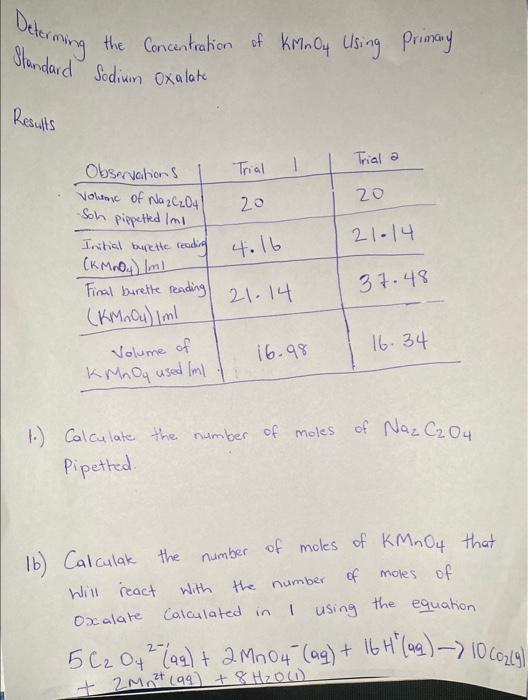 Determing the Concentration of KMnO4 Using Primary
Standard Sodium Oxalate
Results
Observations | Trial 1 | Trial 2
Volume of Na2C2O4
Soln pippetted /ml 20 20
Initial burette reading
(KMnO4) /ml 4.16 21.14
Final burette reading
(KMnO4) /ml 21.14 37.48
Volume of
KMnO4 used /ml 16.98 16.34
1.) Calculate the number of moles of Na2C2O4
Pipetted.
1b) Calculate the number of moles of KMnO4 that
Will react with the number of moles of
Oxalate Calculated in 1 using the equation
5C2O4²⁻(aq) + 2MnO4⁻(aq) + 16H⁺(aq) -> 10CO2(g)
+ 2Mn²⁺(aq) + 8H2O(l)